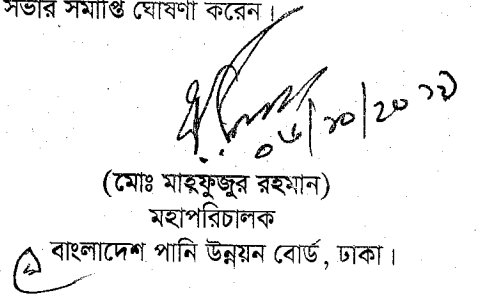 সভার সমাপ্তি ঘোষণা করেন।
(মোঃ মাহ্ফুজুর রহমান)
মহাপরিচালক
বাংলাদেশ পানি উন্নয়ন বোর্ড, ঢাকা।